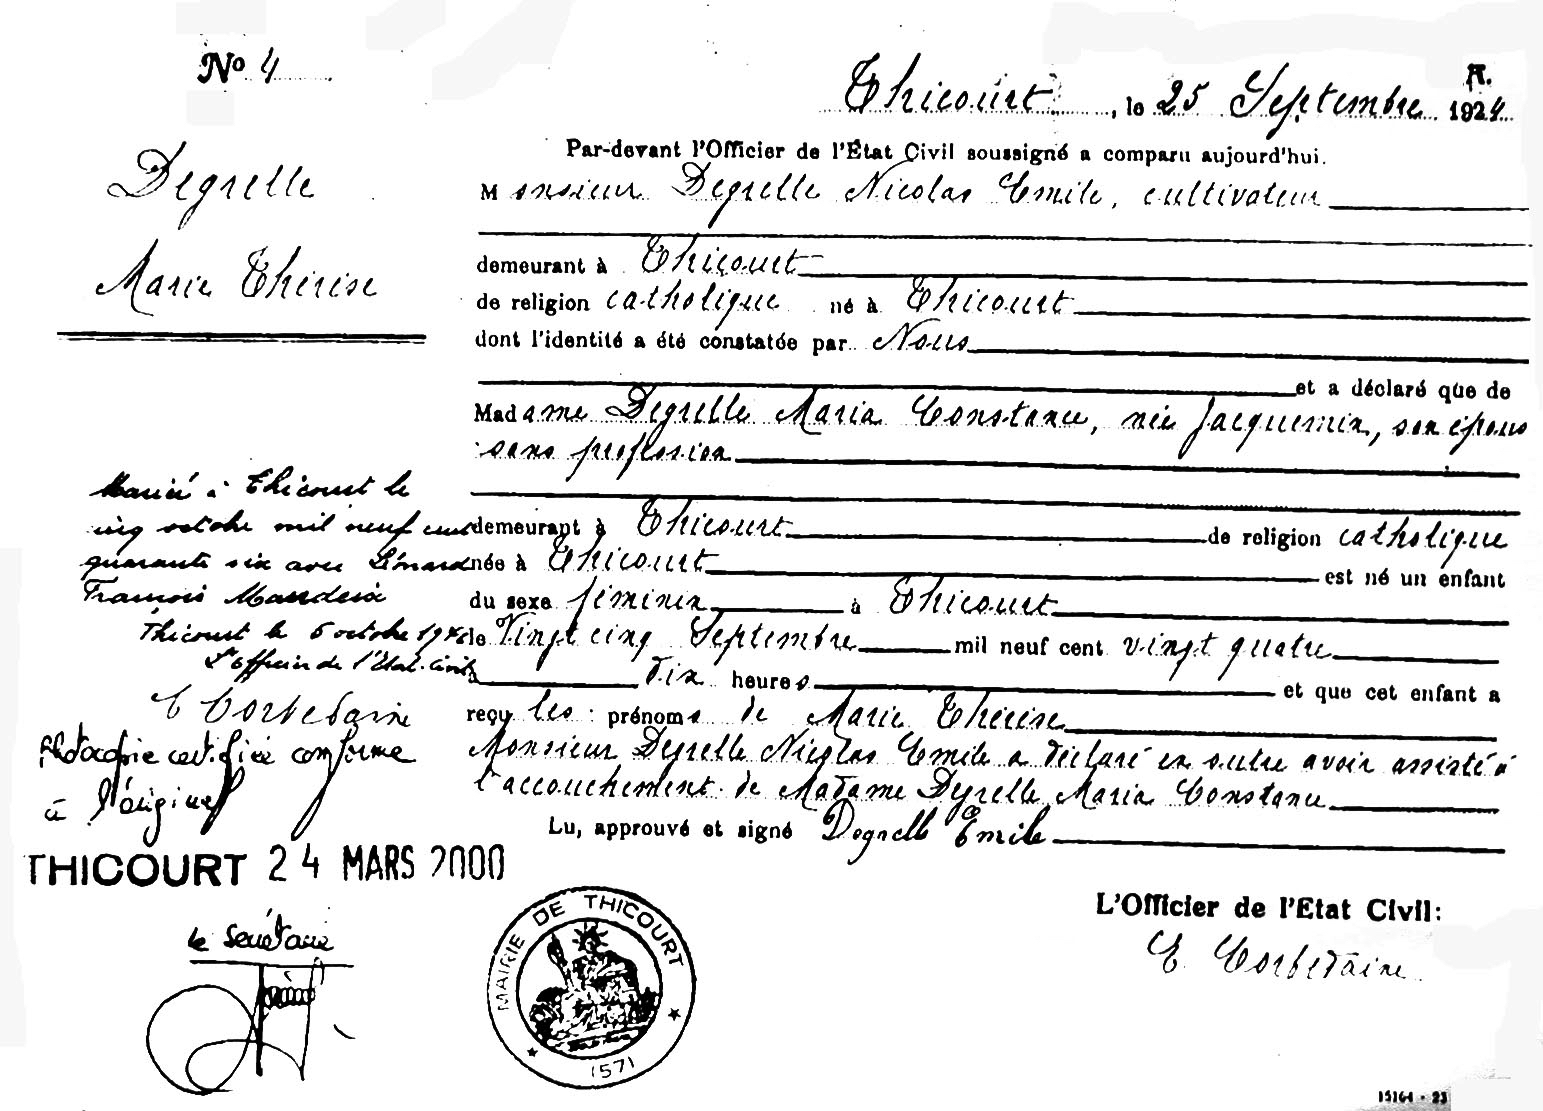 No 4
A.
Thicourt, le 25 Septembre 1924
Par-devant l'Officier de l'État Civil soussigné a comparu aujourd'hui.
Degrelle
Marie Thérèse
Monsieur Degrelle Nicolas Emile, cultivateur
demeurant à Thicourt
de religion catholique né à Thicourt
dont l'identité a été constatée par Nous
et a déclaré que de
Madame Degrelle Maria Constance, née Jacquemin, son épouse
sans profession
demeurant à Thicourt de religion catholique
née à Thicourt est né un enfant
du sexe féminin à Thicourt
le Vingt cinq Septembre mil neuf cent vingt quatre
à dix heures et que cet enfant a
reçu les prénoms de Marie Thérèse
Monsieur Degrelle Nicolas Emile a déclaré en outre avoir assisté à
l'accouchement de Madame Degrelle Maria Constance
Lu, approuvé et signé Degrelle Emile
L'Officier de l'Etat Civil:
E. Corbedaine
Mariée à Thicourt le
cinq octobre mil neuf cent
quarante six avec Léonard
François
Thicourt le 6 octobre
L'officier de l'État-Civil
E Corbedaine
Photocopie certifiée conforme
à l'original
THICOURT 24 MARS 2000
le Secrétaire
MAIRIE DE THICOURT
(57)
15164 - 23